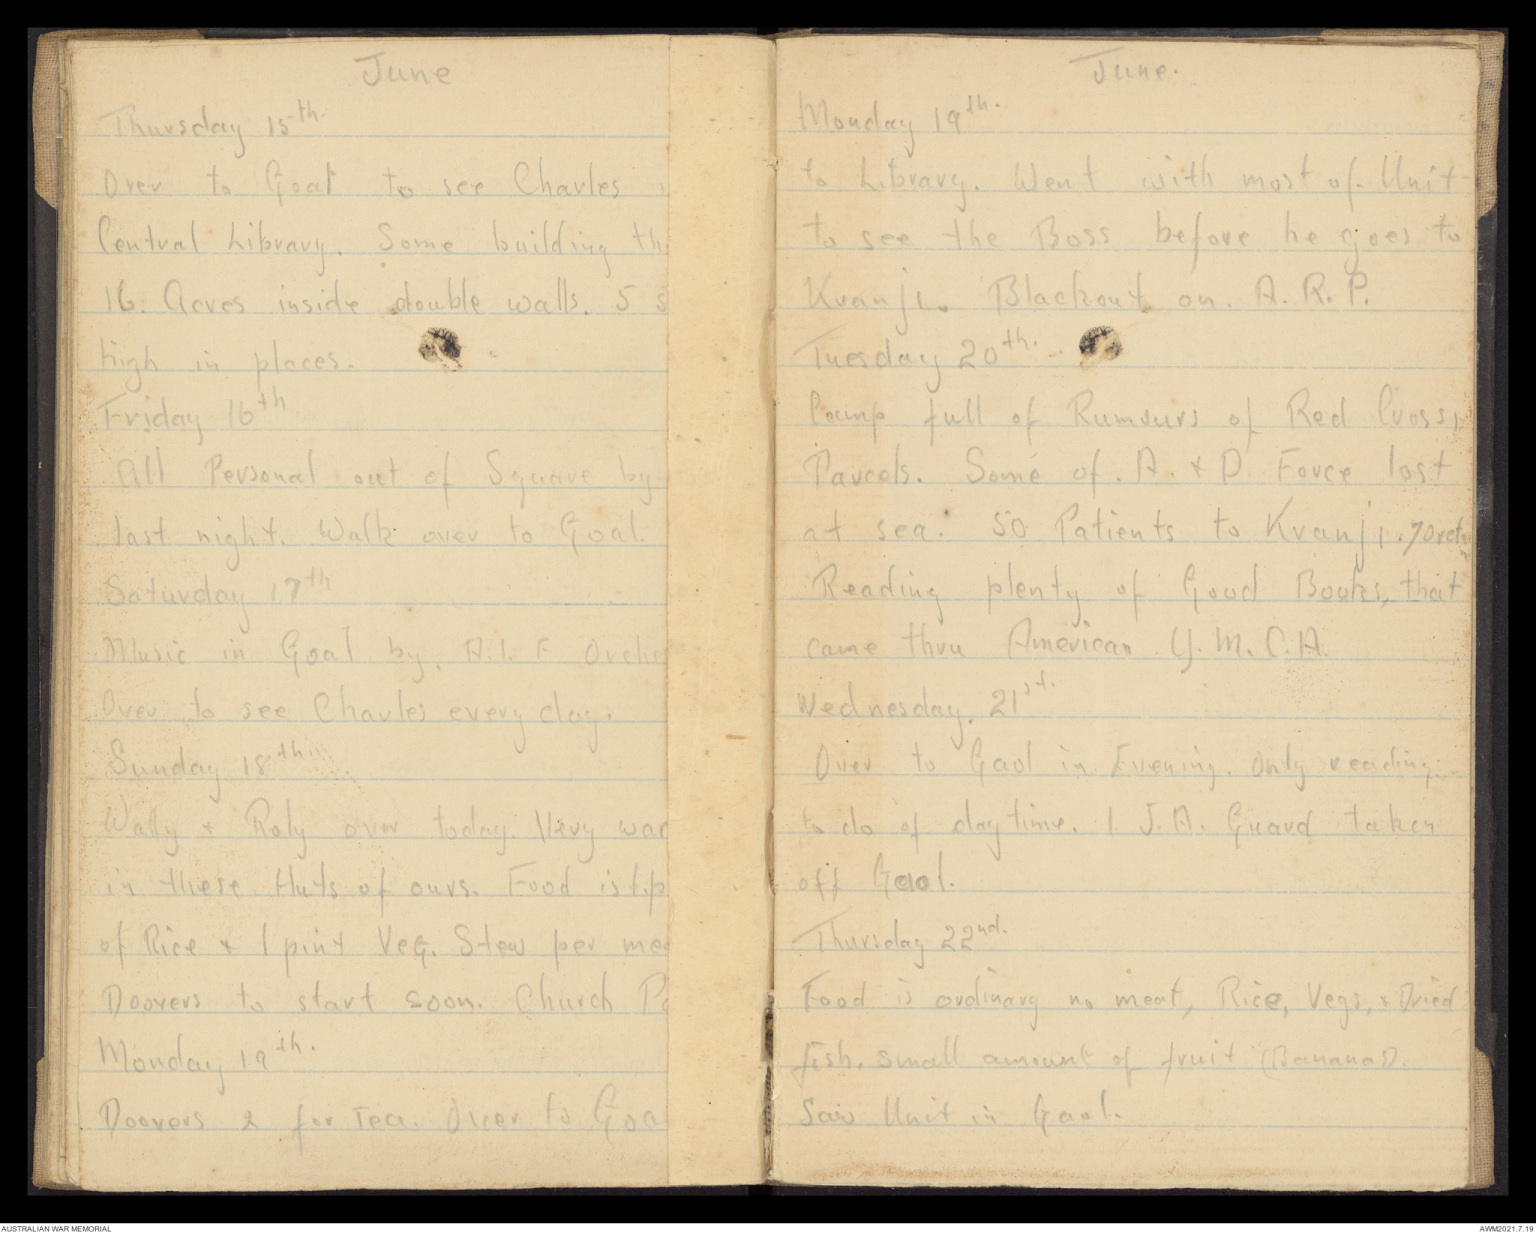 June
Thursday 15th.
Over to Goal to see Charles
Central Library. Some building th
16. Acres inside double walls. 5 s
high in places.
Friday 16th
All Personal out of Square by
last night. Walk over to Goal.
Saturday 17th
Music in Goal by. A.I.F Orche
Over to see Charles every day.
Sunday 18th.
Wally + Roly over today. Very war
in these Huts of ours. Food is 1.p
of Rice + 1 pint Veg. Stew per mea
Doovers to start soon. Church Pa
Monday 19th.
Doovers 2 for Tea. Over to Goa
June.
Monday 19th.
to Library. Went with most of. Unit
to see the Boss before he goes to
Kranji. Blackout on. A.R.P.
Tuesday 20th.
Camp full of Rumours of Red Cross,
Parcels. Some of. A. + D Force lost
at sea. 50 Patients to Kranji. 70 retn
Reading plenty of Good Books, that
came thru American Y.M.C.A.
Wednesday. 21st.
Over to Gaol in Evening. Only reading
to do of day time. I.J.A. Guard taken
off Gaol.
Thursday 22nd.
Food is ordinary no meat, Rice, Vegs, + Dried
fish. small amount of fruit (Bananas).
Saw Unit in Gaol.
AUSTRALIAN WAR MEMORIAL
AWM2021.7.19